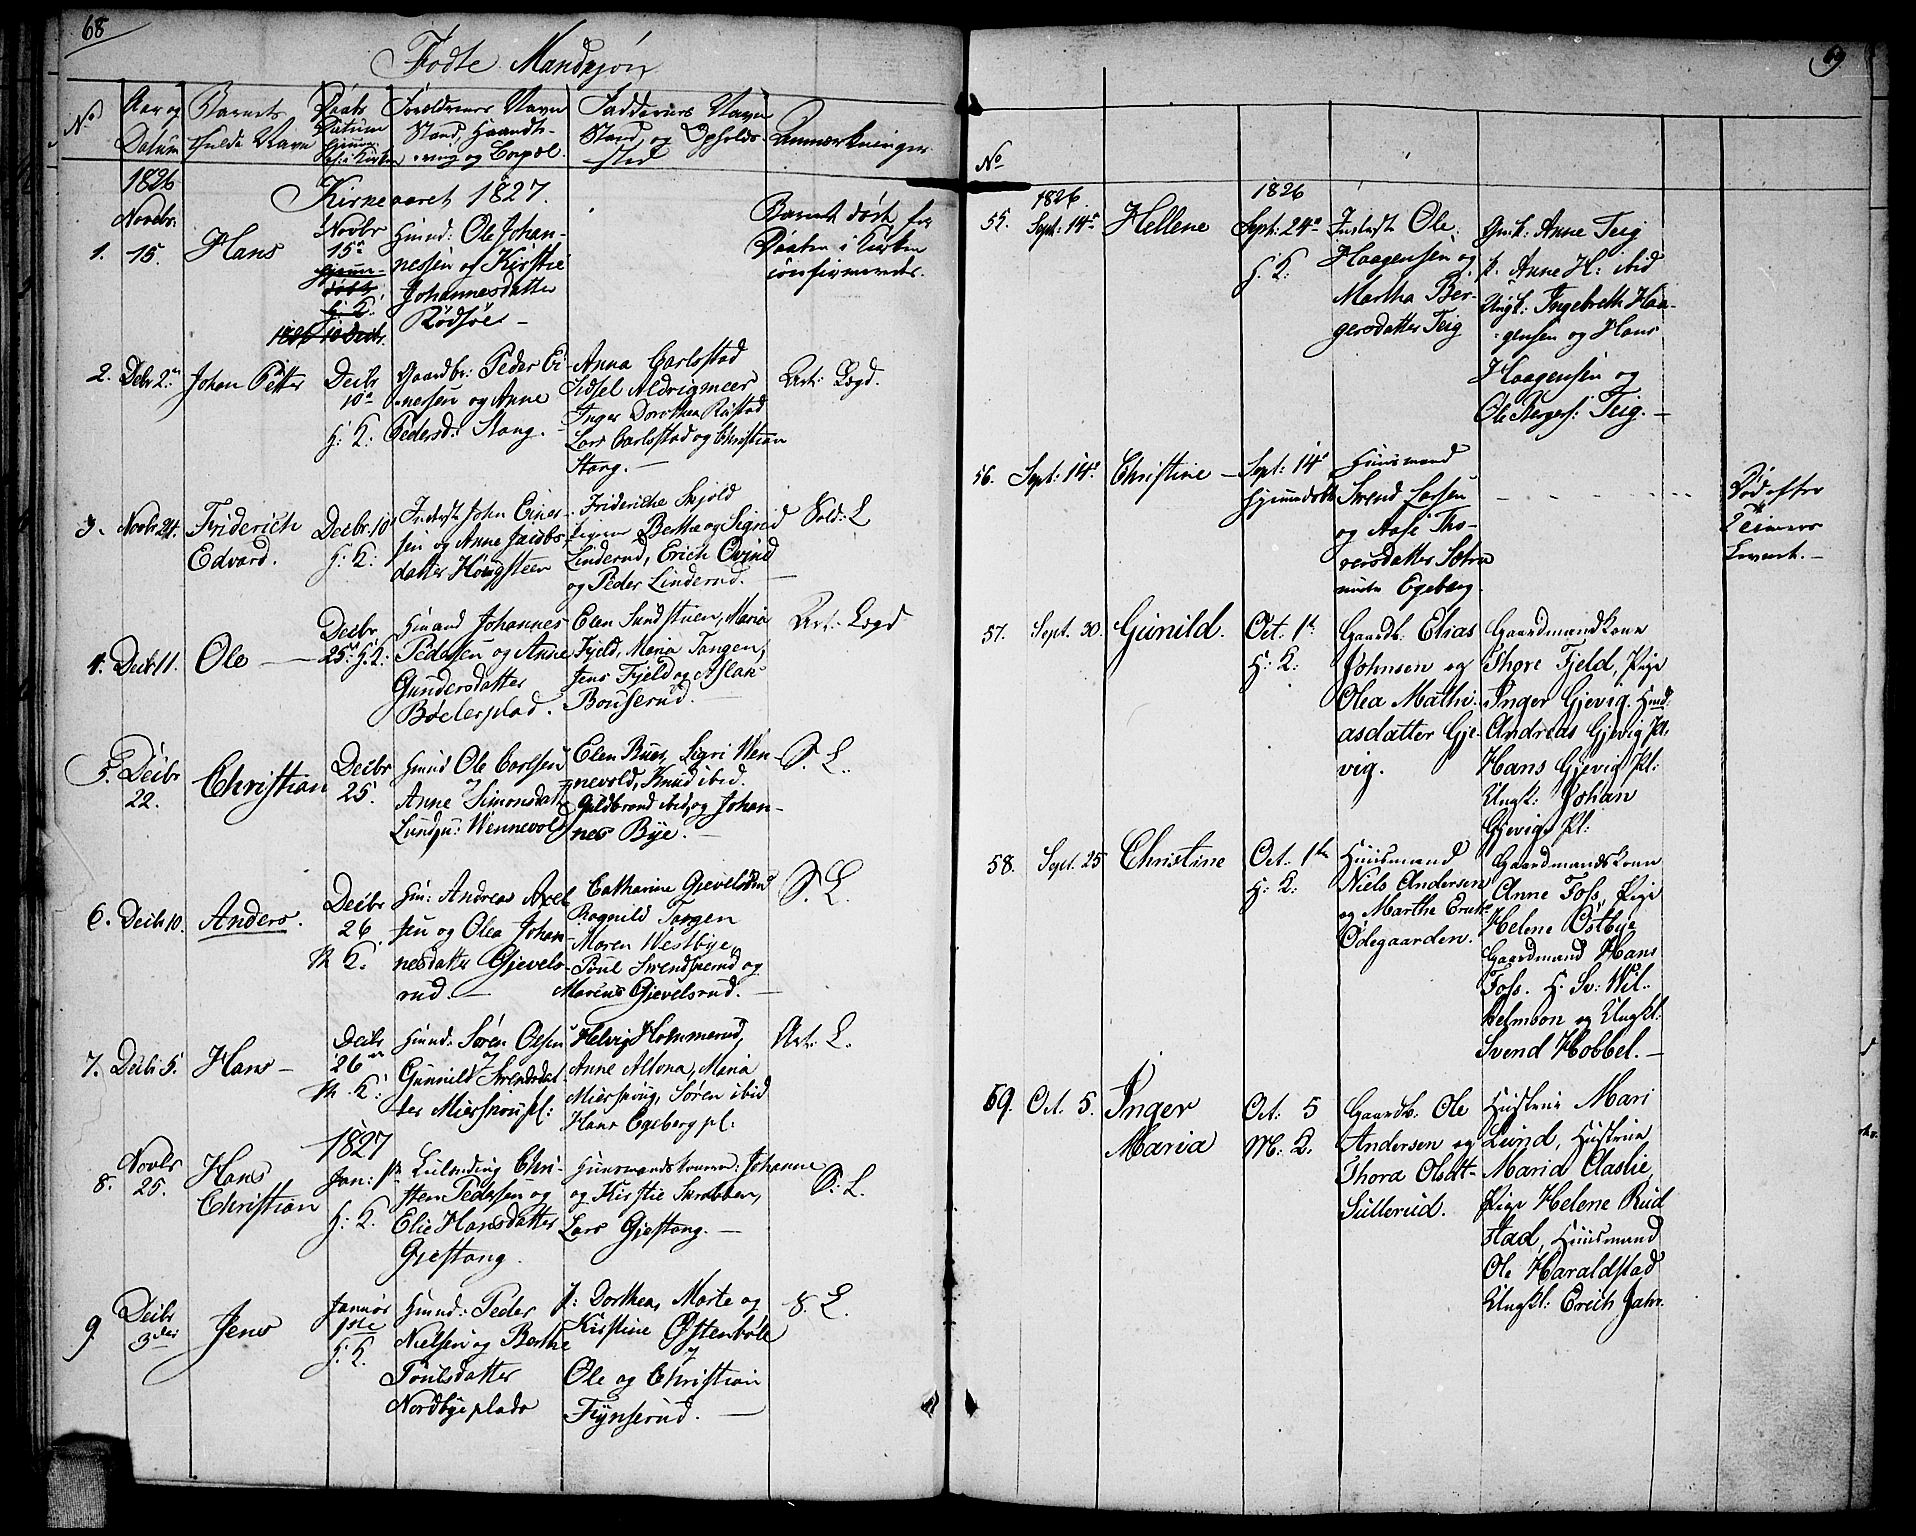 68
Fødte Mandkjøn
No
Aar og
Datum
Barnets
fulde Navn
Daabs
Datum
Forældrenes Navn
Stand, Haandte-
-ring og Bopæl.
Faddernes Navn
Stand, og Opholds-
-sted
Anmærkninger.
Kirkeaaret 1827.
1826
Novbr.
1. 15.
Hans
Novbr
15de
H: K:
1826 10 Decbr.
Huusmd: Ole Johan-
nessen og Kirstie
Johannesdatter
Rødsøe -
Barnet døde før
Daaben i Kirken
confirmeredes.
2. Decbr 2den
Johan Petter
Decbr
10de
H: K:
Gaardbr: Peder Ei-
nersen og Anne
Pedersd: Stang.
Anna Carlsstad
Sidsel Aldrigmeer
Inger Dorothea Rustad
Lars Carlsstad og Christian
Stang. -
Art: Lægd.
3. Novbr 24.
Friderich
Edvard.
Decbr. 10
H: K:
Inderste John Einer-
sen og Anne Jacobs-
datter Hougsteen
Frideriche Skjold
Pigerne Berthe og Sigrid
Linderud, Erich Qvind
og Peder Linderud. -
Sold: L
4. Decbr 11.
Ole -
Decbr
25de H: K:
Huusmd Johannes
Pedersen og Anne
Gundersdatter
Bølerplad.
Elen Sundstuen, Maria
Fjeld, Maria Tangen,
Jens Fjeld og Aslak
Bouserud. -
Art: Lægd
5. Decbr
22.
Christian
Decbr
25.
Huusmd Ole Carlsen
og
Anne Simonsdatt
Lundju: Wennevold
Elen Buer, Sigri Wen-
nevold, Knud ibid.
Guldbrand ibid, og Johan-
nes Bye. -
S. L.
6. Decbr 10.
Anders.
Decbr
26
M K.
Huusm: Andreas Axel-
sen og Olea Johan-
nesdatter Gjevels-
rud -
Catharine Gjevelsrud
Ragnild Tangen
Maren Westbye,
Poul Svendserud og
Marcus Gjevelsrud. -
S. L.
7. Decbr 5.
Hans -
Decbr
26
M. K:
Huusmd: Søren Olsen
og
Gunnild Svendsdat-
ter Miersjøu pl:
Helvig Holmmerud,
Anne Altona, Maria
Miersjøug, Søren ibid
Hans Egeberg pl:
Art: L.
8.
Novbr
25.
Hans
Christian
1827
Jan: 1ste
H: K.
Leilending Chri-
sten Pedersen og
Elie Hansdatter
Gjestang.
Huusmandskonerne: Johanne
og Kirstie Skrabben,
Lars Gjestang. -
S: L.
9.
Decbr
3die
Jens
Januar
1ste
H: K.
Huusmd: Peder
Nielsen og Berthe
Poulsdatter
Nordbye plads
P: Dorthea, Marte og
Kirstine Østenbøle
Ole og Christian
Fynserud. -
S. L.
69
No
55.
1826.
Sept: 14de
Hellene
1826
Sept: 24de
H: K:
Inderste Ole
Haagensen og
Martha Ber-
gersdatter Teig
Gmk: Anne Teig
P. Anne H: ibid
Ungk: Ingebreth Haa-
gensen og Hans
Haagensen og
Ole Bergers: Teig. -
56. Sept: 14de
Christine -
Sept: 14de
hjemmedøbt
Huusmand
Svend Larsen
og Aase Tho-
versdatter
under Egeberg.
Død efter
Times
Levnet. -
57. Sept. 30.
Gunild.
Oct. 1ste
H: K:
Gaardb. Elias
Johnsen og
Olea Mathi-
asdatter Gje-
vig.
Gaardmandkone
Thore Fjeld, Pige
Inger Gjevig. Huusmd:
Andreas Gjevig Pl.
Hans Gjevig Pl:
Ungk: Johan
Gjevigs Pl:
58. Sept. 25
Christine
Oct. 1ste
H: K:
Huusmand
Niels Andersen
og Marthe Ericksd
Ødegaarden.
Gaardmandskone
Anne Foss, Pige
Helene Østbye
Gaardmand Hans
Foss. H. Sv: Wil-
helmson og Ungkl:
Svend Hobbel. -
59. Oct. 5.
Inger
Maria
Oct: 5
M: K.
Gaardb. Ole
Andersen og
Thora Olsdt-
Sullerud.
Hustrue Mari
Lund, Hustrue
Maria Claslie,
Pige Helene Rud
stad, Huusmand
Ole Haraldstad
Ungkl: Erich Jahr.